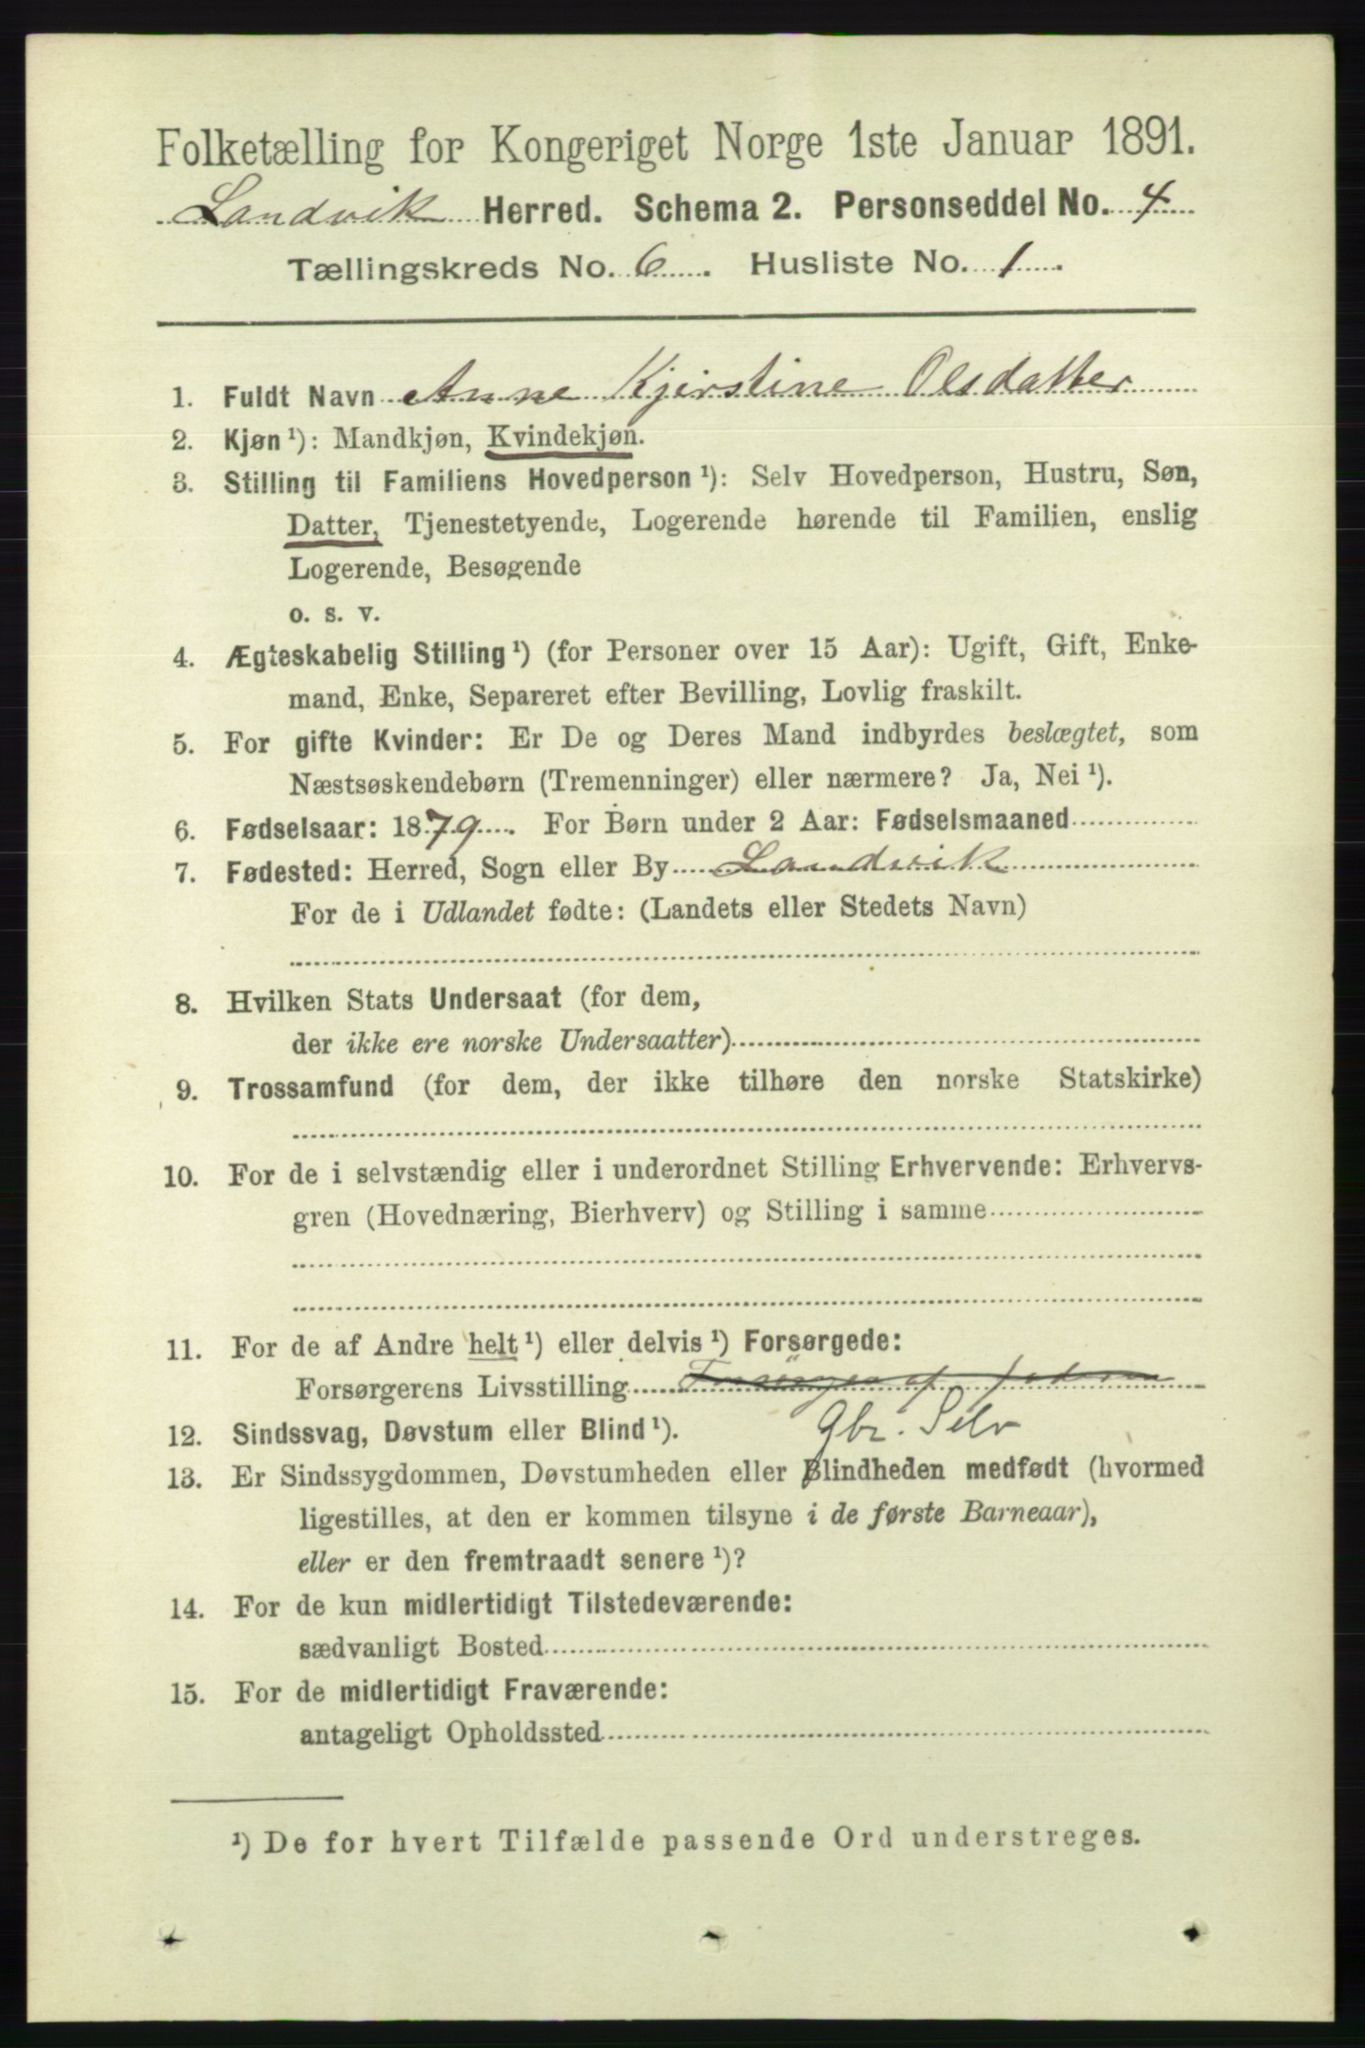 Folketælling for Kongeriget Norge 1ste Januar 1891.
Landvik Herred. Schema 2. Personseddel No. 4
Tællingskreds No. 6. Husliste No. 1.
1. Fuldt Navn Anne Kjirstine Olsdatter
2. Kjøn ¹): Mandkjøn, Kvindekjøn.
3. Stilling til Familiens Hovedperson ¹): Selv Hovedperson, Hustru, Søn,
Datter, Tjenestetyende, Logerende hørende til Familien, enslig
Logerende, Besøgende
o. s. v.
4. Ægteskabelig Stilling ¹) (for Personer over 15 Aar): Ugift, Gift, Enke-
mand, Enke, Separeret efter Bevilling, Lovlig fraskilt.
5. For gifte Kvinder: Er De og Deres Mand indbyrdes beslægtet, som
Næstsøskendebørn (Tremenninger) eller nærmere? Ja, Nei ¹).
6. Fødselsaar: 1879. For Børn under 2 Aar: Fødselsmaaned
7. Fødested: Herred, Sogn eller By Landvik
For de i Udlandet fødte: (Landets eller Stedets Navn)
8. Hvilken Stats Undersaat (for dem,
der ikke ere norske Undersaatter)
9. Trossamfund (for dem, der ikke tilhøre den norske Statskirke)
10. For de i selvstændig eller i underordnet Stilling Erhvervende: Erhvervs-
gren (Hovednæring, Bierhverv) og Stilling i samme
11. For de af Andre helt ¹) eller delvis ¹) Forsørgede:
Forsørgerens Livsstilling af
Gbr. Selv
12. Sindssvag, Døvstum eller Blind ¹).
13. Er Sindssygdommen, Døvstumheden eller Blindheden medfødt (hvormed
ligestilles, at den er kommen tilsyne i de første Barneaar),
eller er den fremtraadt senere ¹)?
14. For de kun midlertidigt Tilstedeværende:
sædvanligt Bosted
15. For de midlertidigt Fraværende:
antageligt Opholdssted
¹) De for hvert Tilfælde passende Ord understreges.